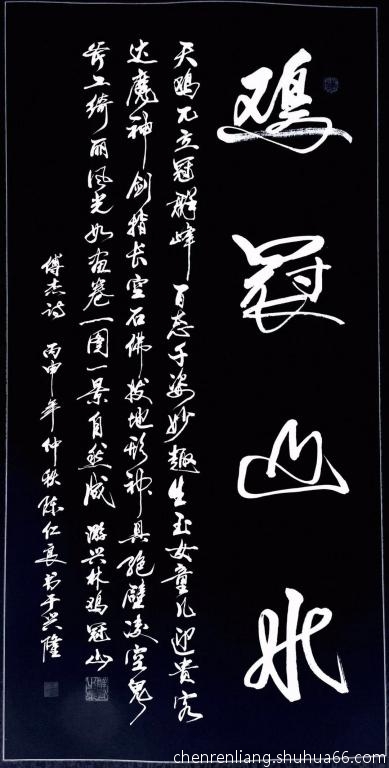 鸡冠山水
天鸡兀立冠群峰百态千姿妙趣生玉女童儿迎贵客
达魔神剑指长空石佛拔地形神具绝壁凌空鬼
斧工绮丽风光如画卷一图一景自然成 游兴林鸡冠山
傅杰诗 丙申年仲秋陈仁良书于兴隆
chenrenliang.shuhua66.com